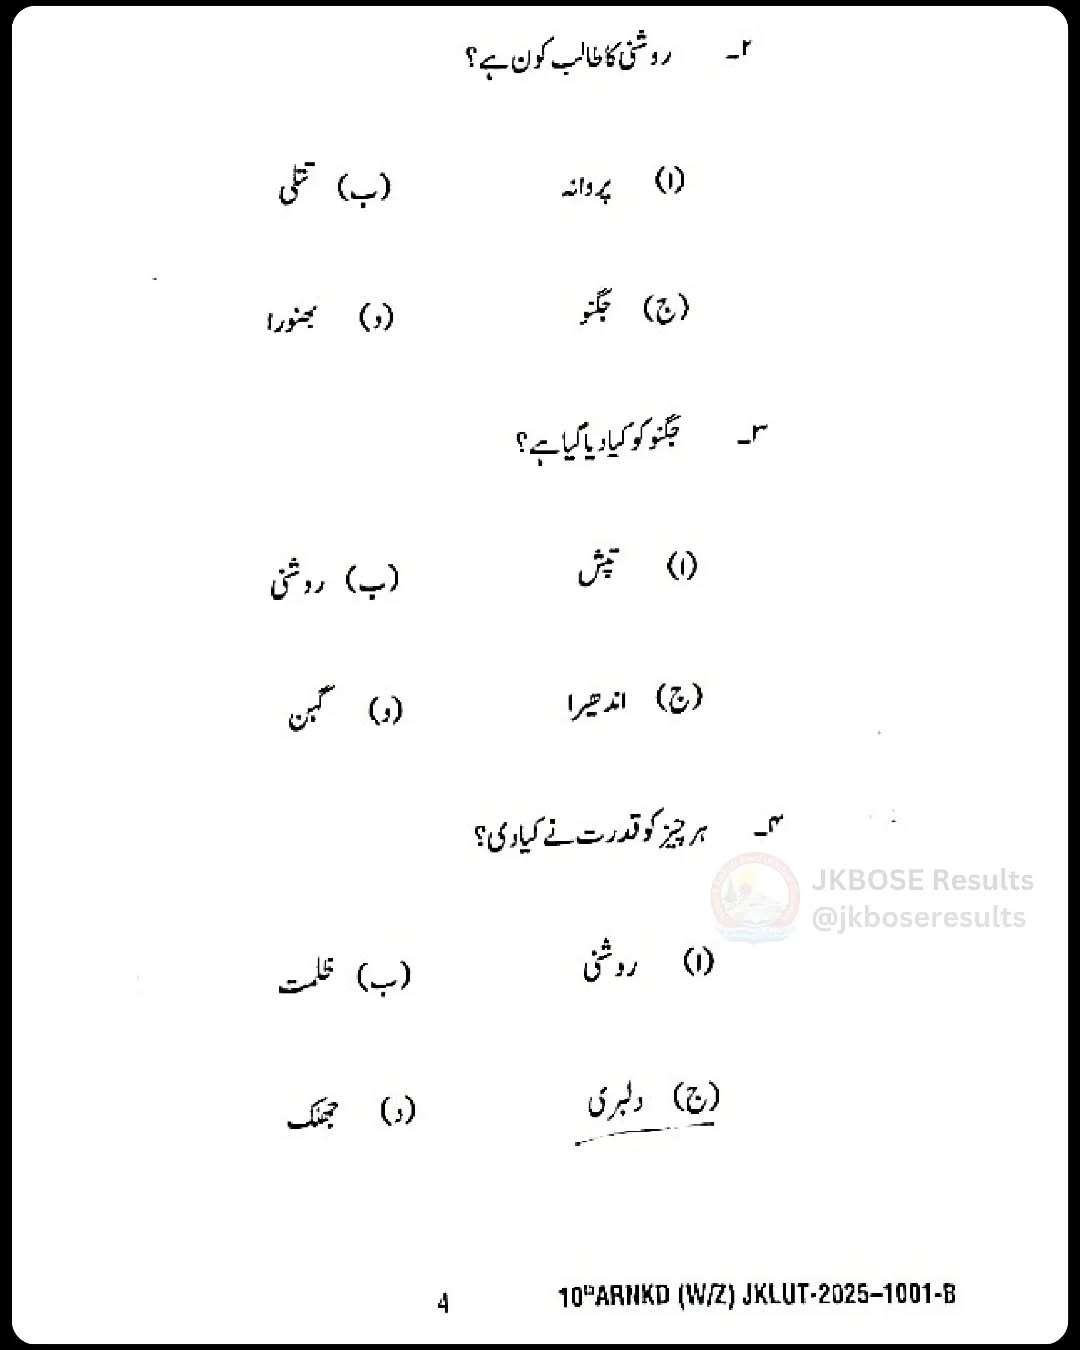 ۲۔ روشنی کا طالب کون ہے؟
(ا) پروانہ (ب) تتلی
(ج) جگنو (د) بھنورا
۳۔ جگنو کو کیا دیا گیا ہے؟
(ا) تپش (ب) روشنی
(ج) اندھیرا (د) گہن
۴۔ ہر چیز کو قدرت نے کیا دی؟
JKBOSE Results
@jkboseresults
(ا) روشنی (ب) ظلمت
(ج) دلبری (د) جھلک
4 10thARNKD (W/Z) JKLUT-2025–1001-B